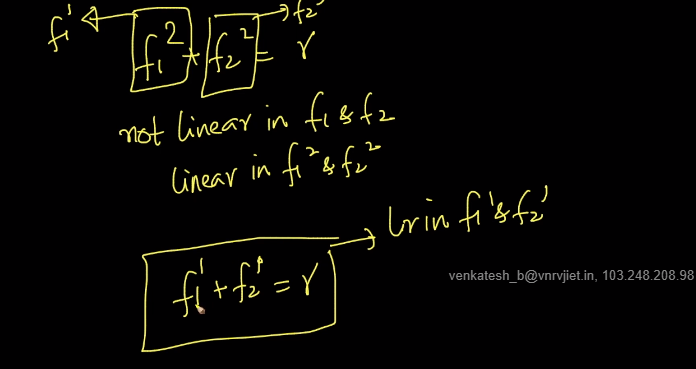 f₁' ← f₁² + f₂² = r → f₂'
not linear in f₁ & f₂
linear in f₁² & f₂²
Lr in f₁' & f₂'
f₁' + f₂' = r
venkatesh_b@vnrvjiet.in, 103.248.208.98